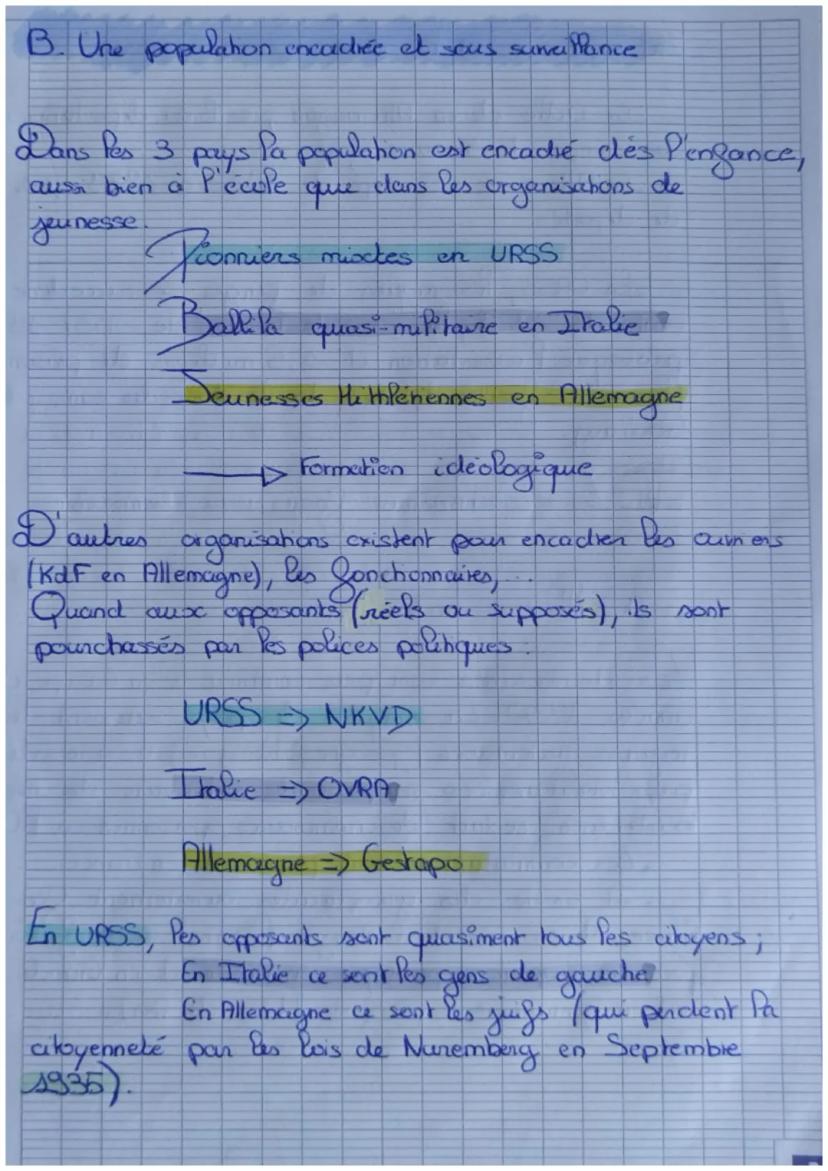 B. Une population encadrée et sous surveillance
Dans les 3 pays la population est encadré dés l'enfance,
aussi bien à l'école que dans les organisations de
jeunesse.
Pionniers mixtes en URSS
Ballila quasi-militaire en Italie
Jeunesses Hithlériennes en Allemagne
→ Formation idéologique
D'autres organisations existent pour encadrer les ouvriers
(KdF en Allemagne), les fonctionnaires,...
Quand aux opposants (réels ou supposés), ils sont
pourchassés par les polices politiques.
URSS => NKVD
Italie => OVRA
Allemagne => Gestapo
En URSS, les opposants sont quasiment tous les citoyens ;
En Italie ce sont les gens de gauche
En Allemagne ce sont les juifs (qui perdent la
citoyenneté par les lois de Nuremberg en Septembre
1935).